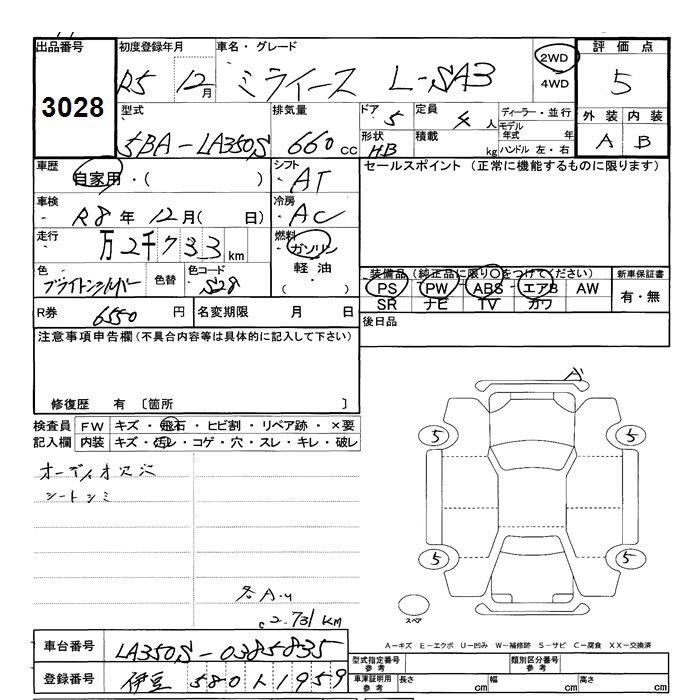 出品番号 3028
初度登録年月 R5 12月
車名・グレード ミライース L-SAⅢ
2WD
4WD
評価点 5
外装 内装
A B
型式 5BA-LA350S
排気量 660 cc
ドア 5
定員 4 人
形状 HB
積載 kg
ディーラー・並行
モデル年式 年
ハンドル 左・右
車歴 自家用・( )
シフト AT
セールスポイント (正常に機能するものに限ります)
車検 R8年 12月( 日)
冷房 AC
走行 万 2千 7 3 3 km
燃料 ガソリン
軽油
( )
色 ブライトシルバー
色替
色コード S28
装備品(純正品に限り○をつけてください)
PS PW ABS エアB AW
SR ナビ TV カワ
新車保証書
有・無
R券 6550 円
名変期限 月 日
後日品
注意事項申告欄(不具合内容等は具体的に記入して下さい)
修復歴 有 〔箇所 〕
検査員 FW キズ・飛石・ヒビ割・リペア跡・×要
記入欄 内装 キズ・汚レ・コゲ・穴・スレ・キレ・破レ
オーディオレス
シートシミ
A
5 5
5 5
スペア
各A.U
2.731 km
A-キズ E-エクボ U-凹み W-補修跡 S-サビ C-腐食 XX-交換済
車台番号 LA350S-0385835
登録番号 伊豆 580 ト 1959
型式指定番号 参考
類別区分番号 参考
車庫証明用 参考
長さ cm 幅 cm 高さ cm